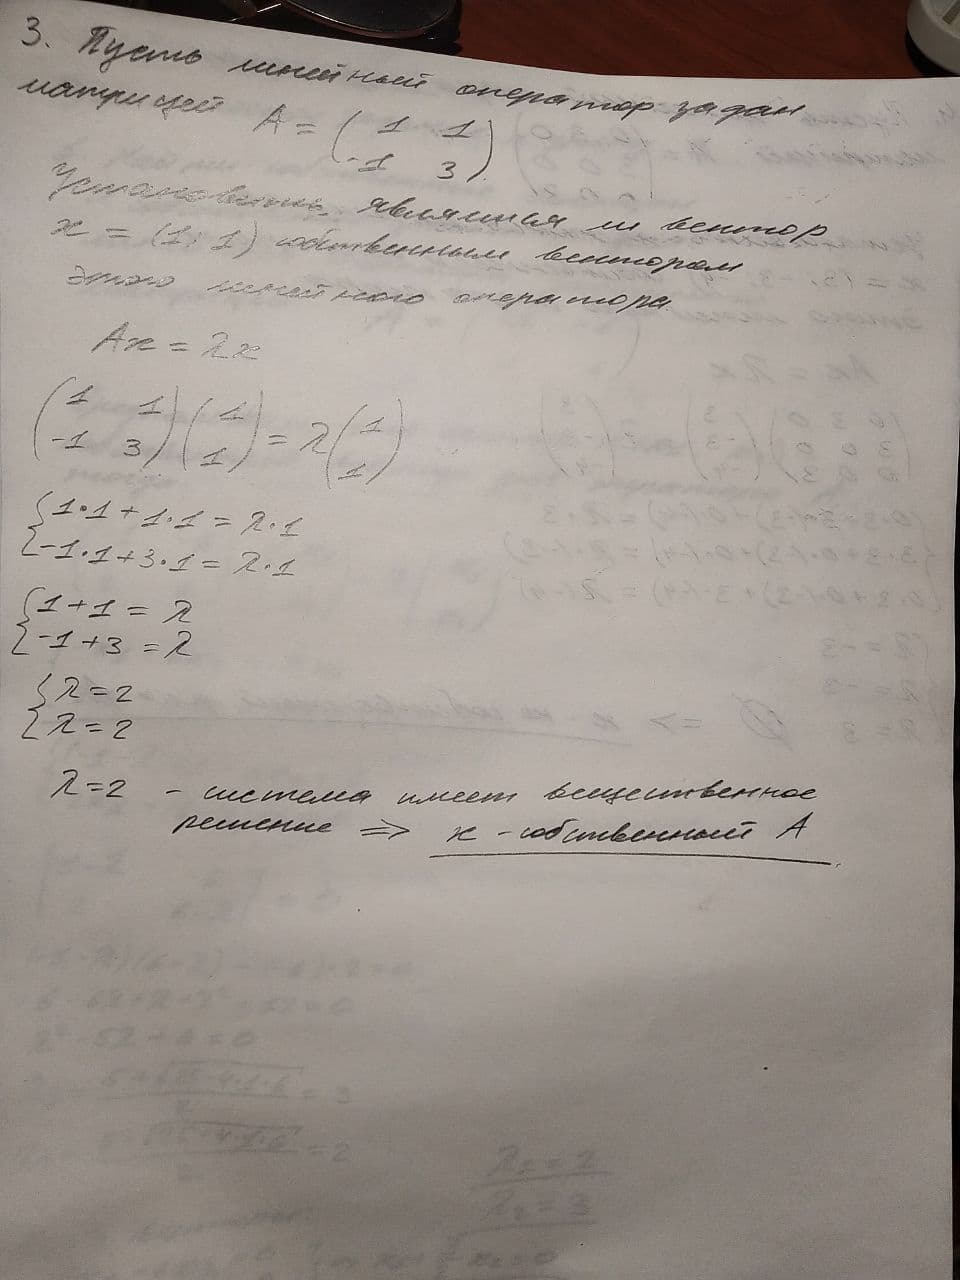 3. Пусть линейный оператор задан
матрицей A = ( 1 1
-1 3 ).
Установить, является ли вектор
x = (1; 1) собственным вектором
этого линейного оператора.
Ax = λx
( 1 1
-1 3 ) ( 1
1 ) = λ ( 1
1 )
{ 1·1 + 1·1 = λ·1
-1·1 + 3·1 = λ·1
{ 1 + 1 = λ
-1 + 3 = λ
{ λ = 2
λ = 2
λ = 2 - система имеет вещественное
решение => x - собственный A.